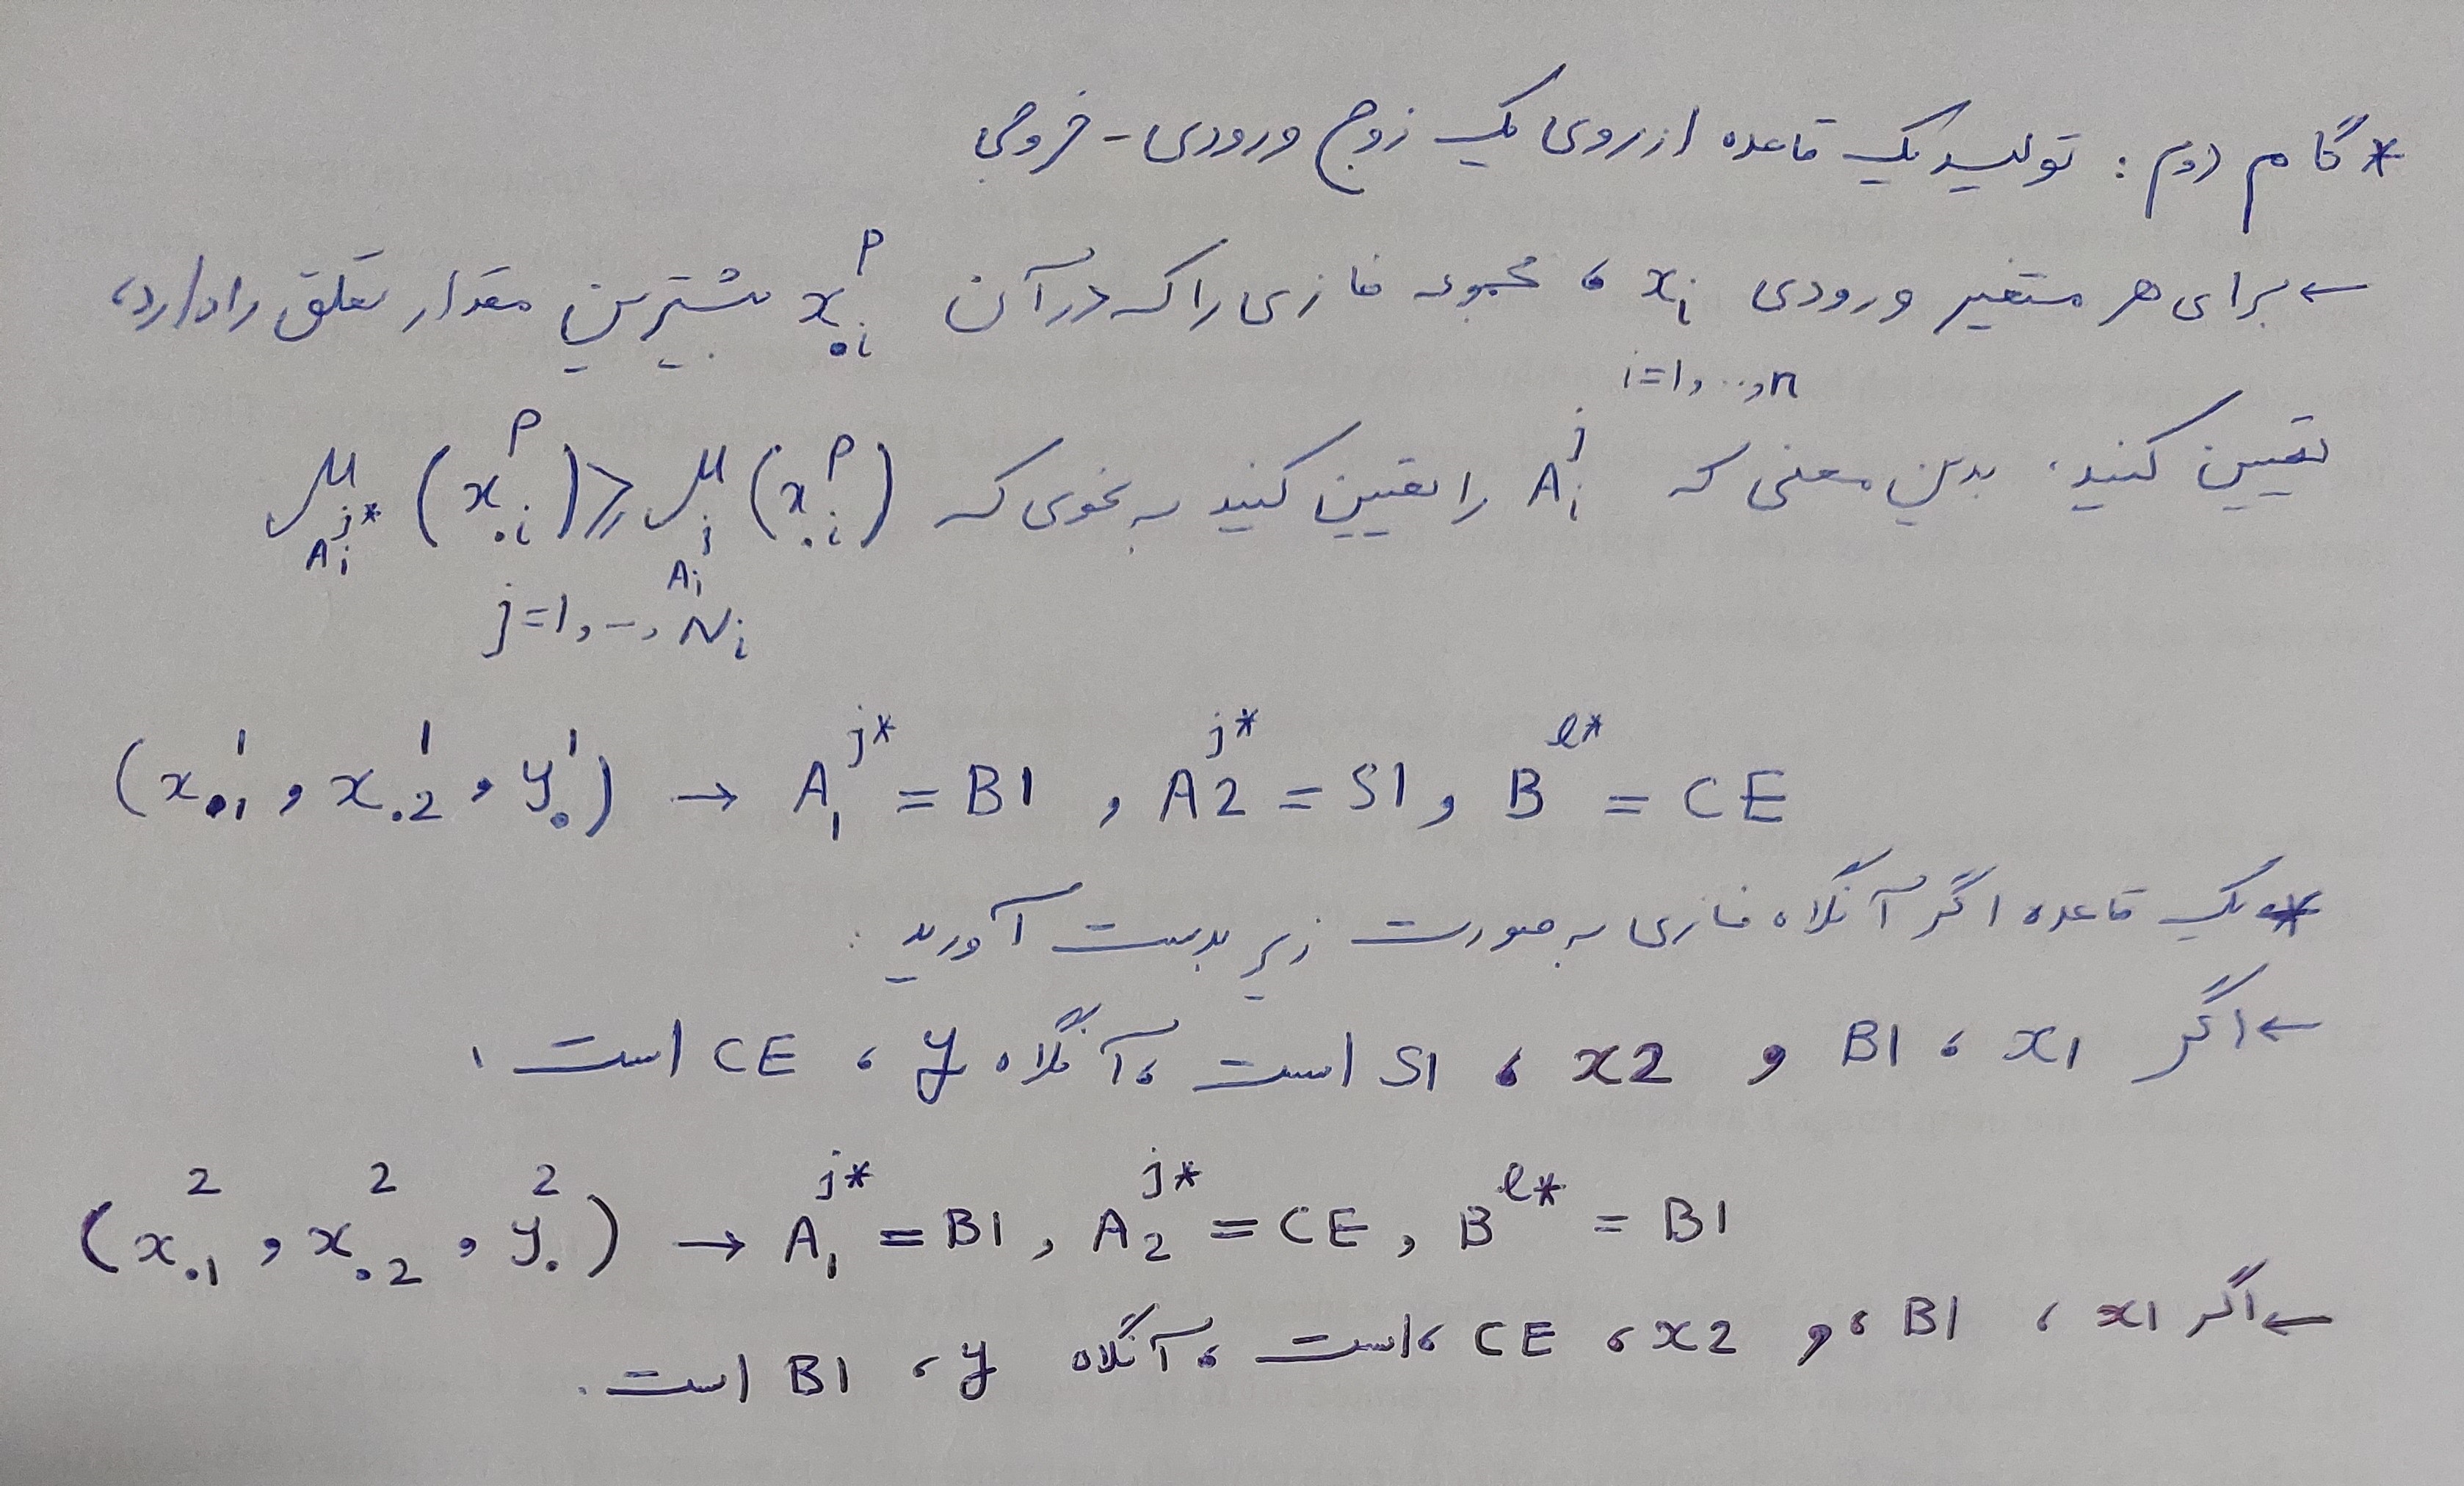 * گام دوم : تولید یک قاعده از روی یک زوج ورودی - خروجی
← برای هر متغیر ورودی xᵢ ، مجموعه فازی را که در آن x₀ᵢᵖ بیشترین مقدار تعلق را دارد،
i=1, ..., n
تعیین کنید. بدین معنی که Aᵢʲ را تعیین کنید به نحوی که μ_{Aᵢʲ*}(x₀ᵢᵖ) ≥ μ_{Aᵢʲ}(x₀ᵢᵖ)
j=1, ..., Nᵢ
(x₀₁¹, x₀₂¹, y₀¹) → A₁ʲ* = B1 , A2ʲ* = S1, Bˡ* = CE
* یک قاعده اگر آنگاه فازی به صورت زیر بدست آورید :
← اگر x1 ، B1 و x2 ، S1 است ، آنگاه y ، CE است .
(x₀₁², x₀₂², y₀²) → A₁ʲ* = B1, A₂ʲ* = CE, Bˡ* = B1
← اگر x1 ، B1 ، و x2 ، CE ، است ، آنگاه y ، B1 است .